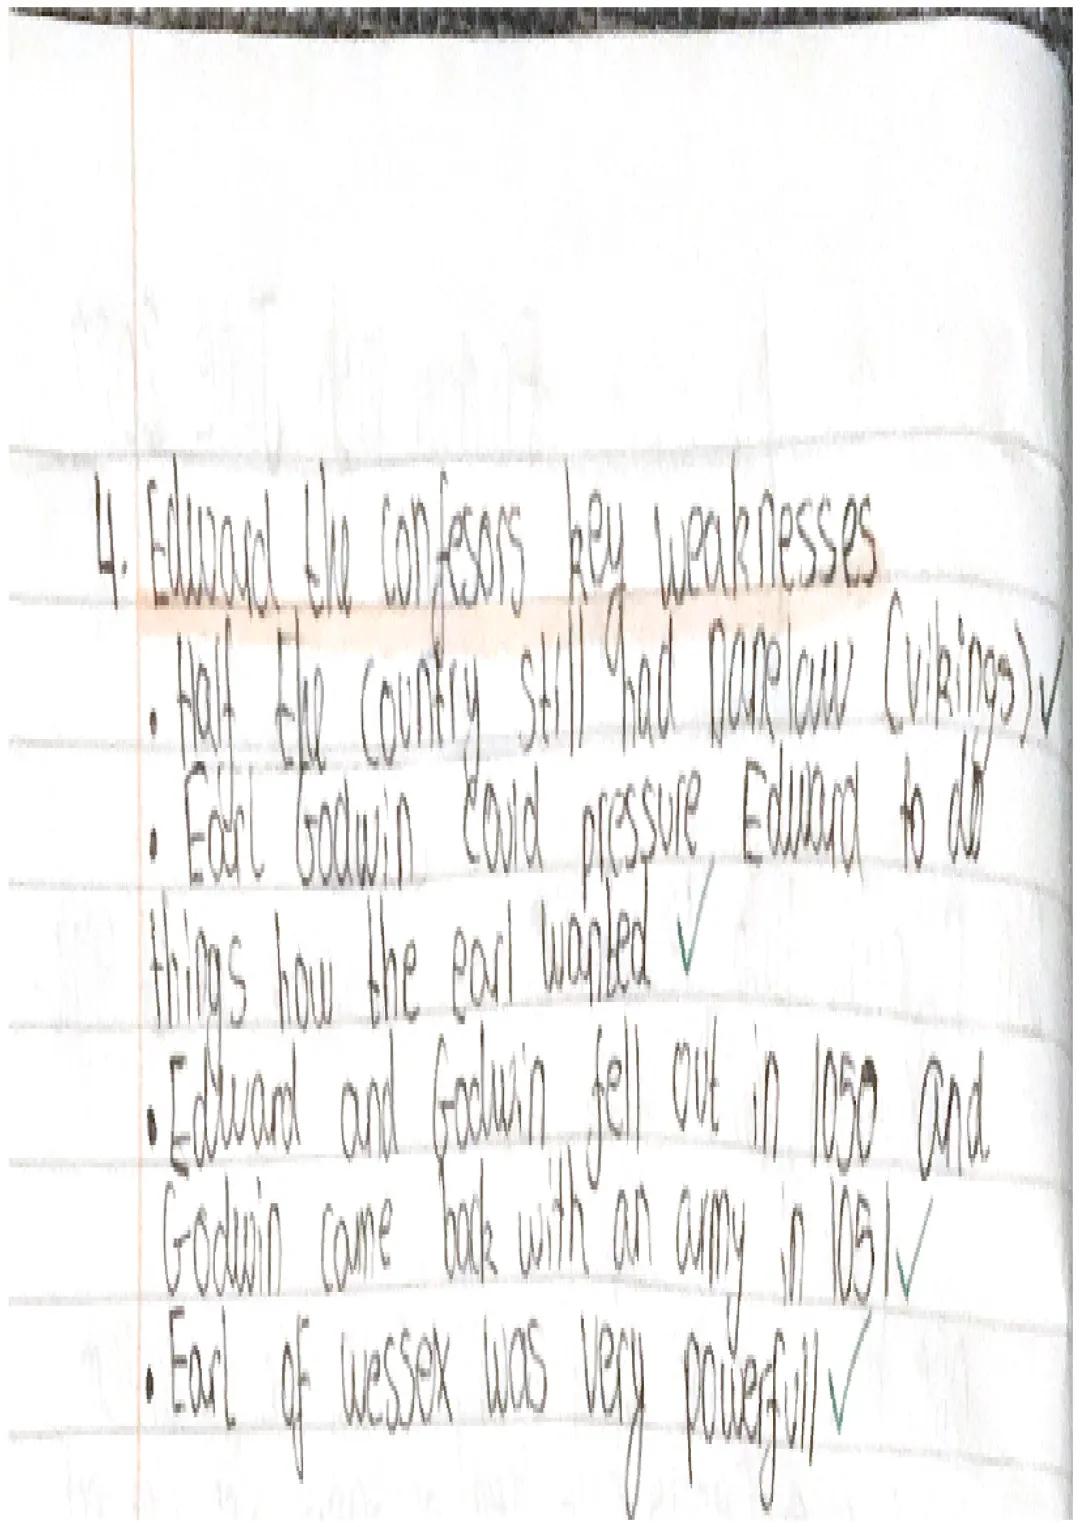 4. Edward the confesors key weaknesses
• Half the country still had Danelaw (vikings) ✓
• Earl Godwin could pressure Edward to do
things how the earl wanted ✓
• Edward and Godwin fell out in 1050 and
Godwin came back with an army in 1051 ✓
• Earl of wessex was very powerfull ✓